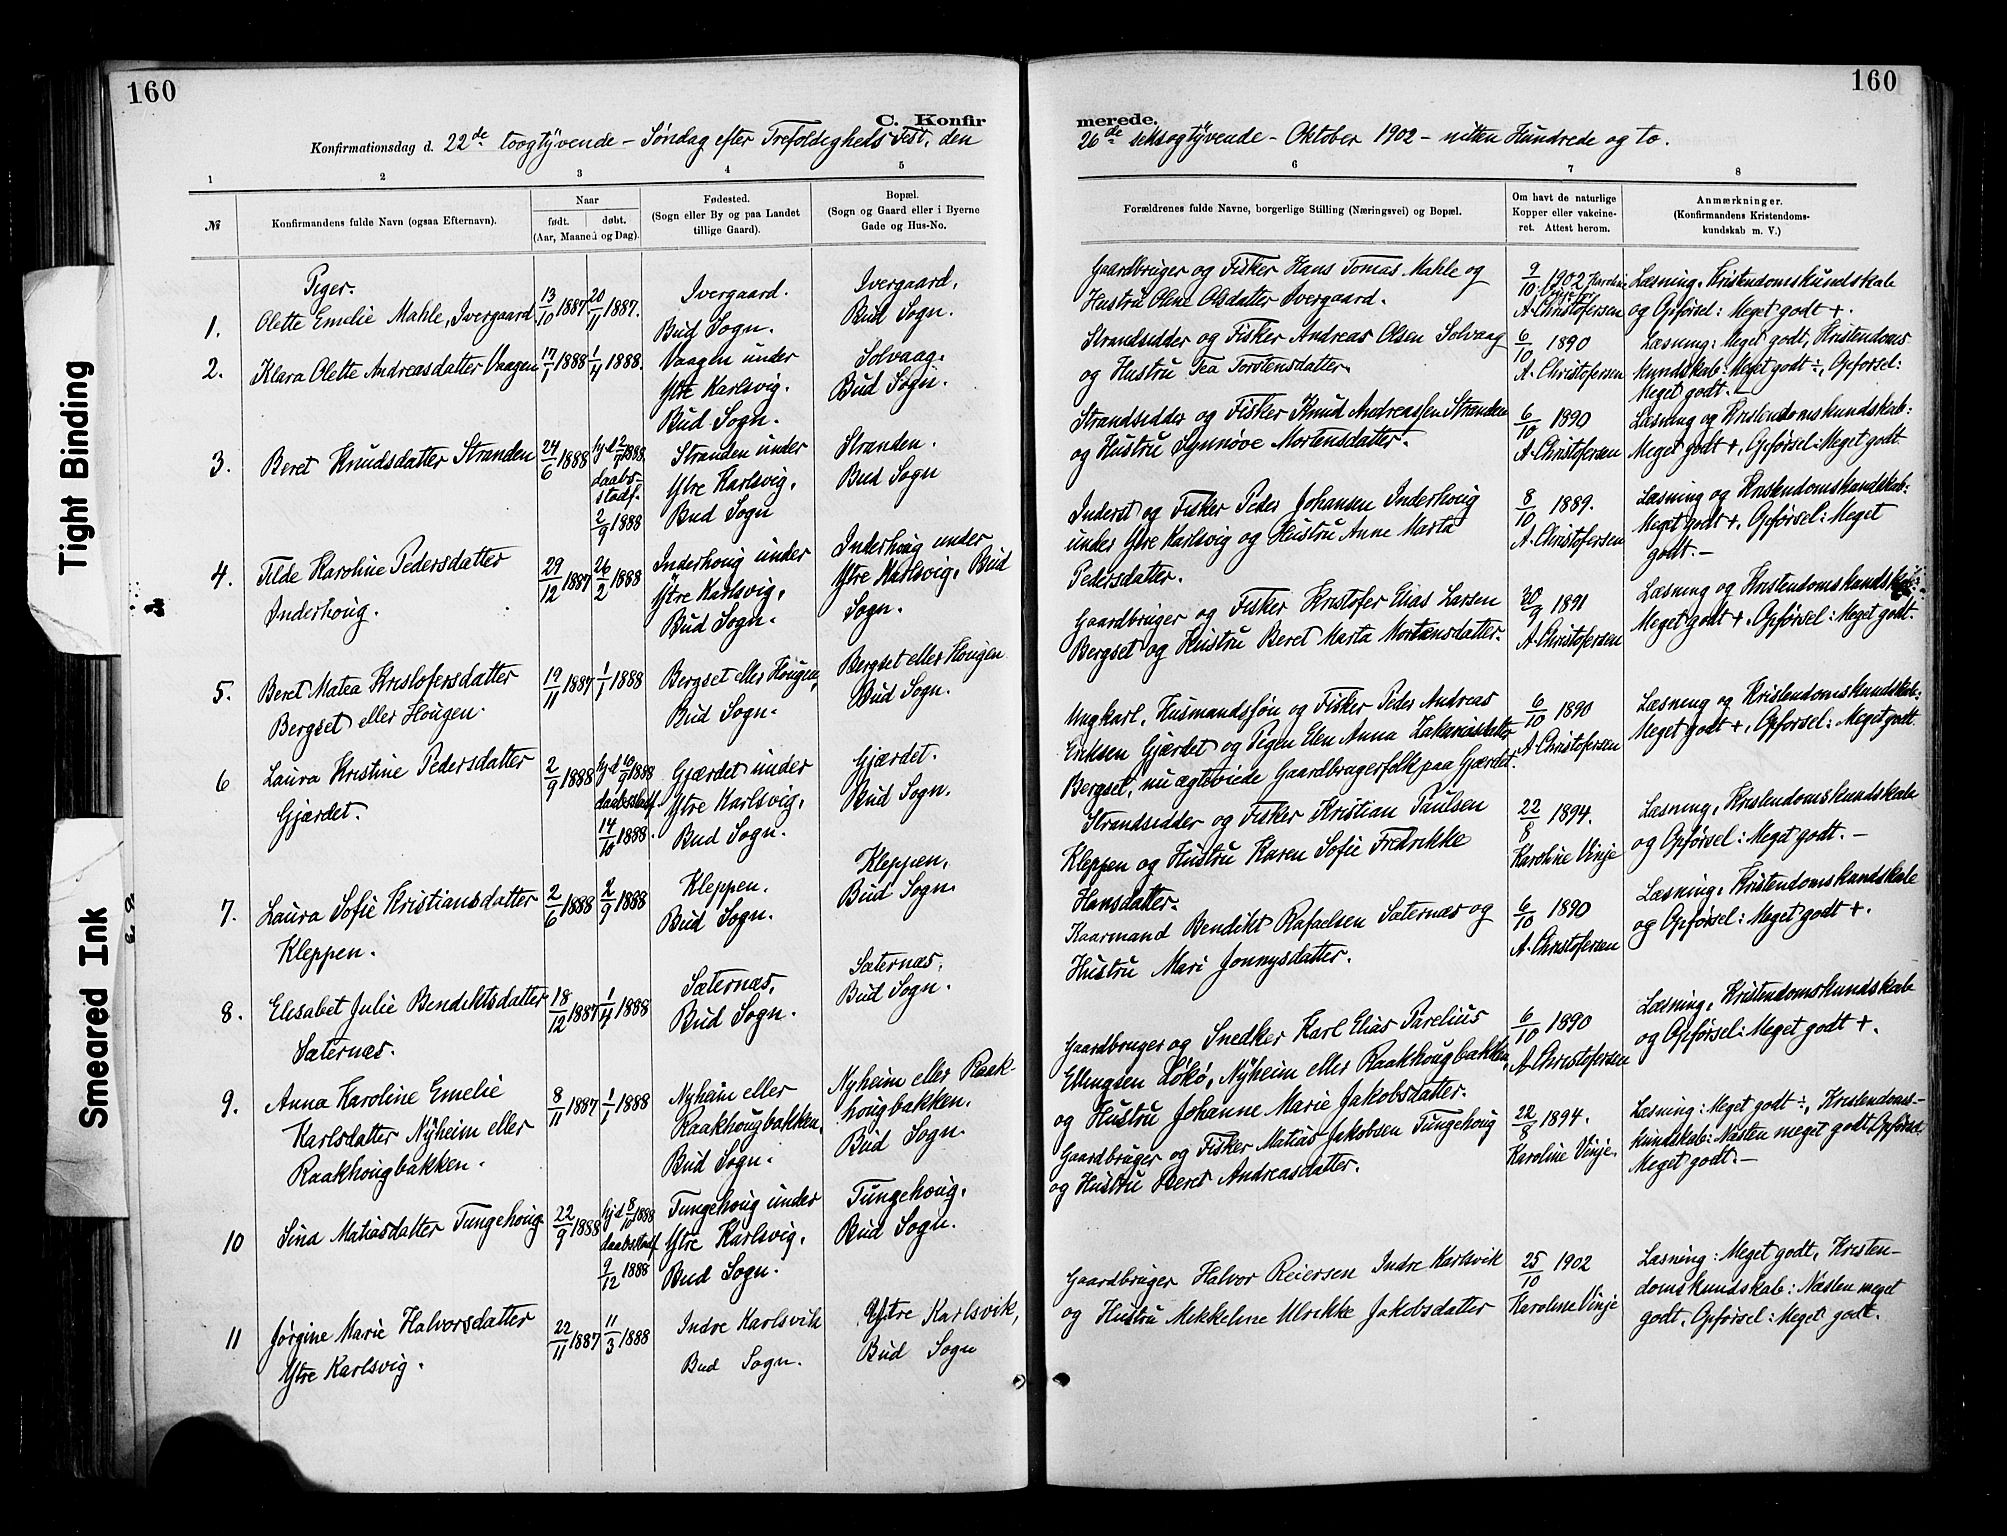 160
C. Konfir
Konfirmationsdag d. 22de toogtÿvende – Søndag efter Trefoldigheds Fest, den
1 2 3 4 5
№
Konfirmandens fulde Navn (ogsaa Efternavn).
Naar
født. døbt.
(Aar, Maaned og Dag).
Fødested.
(Sogn eller By og paa Landet
tillige Gaard).
Bopæl.
(Sogn og Gaard eller i Byerne
Gade og Hus-No.
Piger.
1. Olette Emelie Mahle, Ivergaard 13/10 1887 20/11 1887. Ivergaard. Ivergaard,
Bud Sogn. Bud Sogn.
2. Klara Olette Andreasdatter Vaagen 17/1 1888 1/4 1888. Vaagen under Solvaag.
Ytre Karlsvig. Bud Sogn.
Bud Sogn.
3. Beret Knudsdatter Stranden 24/6 1888 hj d 2/9 1888 Stranden under Stranden.
daabs- Ytre Karlsvig, Bud Sogn
stadf. Bud Sogn
2/9 1888
4. Tilde Karoline Pedersdatter 29/12 1887 26/2 1888 Inderhoug under Inderhoug under
Inderhoug. Ytre Karlsvig, Ytre Karlsvig, Bud
Bud Sogn. Sogn.
5. Beret Matea Kristofersdatter 19/11 1887 1/1 1888 Bergset eller Hougen, Bergset eller Hougen
Bergset eller Hougen. Bud Sogn. Bud Sogn.
6 Laura Kristine Pedersdatter 2/9 1888 hj d 10/9 1888 Gjærdet under Gjærdet.
Gjærdet. daabsstadf. Ytre Karlsvig, Bud Sogn.
14/10 1888. Bud Sogn.
7. Laura Sofie Kristiansdatter 2/6 1888 2/9 1888 Kleppen. Kleppen,
Kleppen. Bud Sogn. Bud Sogn.
8. Elisabet Julie Bendiktsdatter 18/12 1887 1/4 1888 Sæternæs, Sæternæs,
Sæternæs. Bud Sogn. Bud Sogn.
9. Anna Karoline Emelie 8/11 1887 1/1 1888 Nyheim eller Nyheim eller Raak-
Karlsdatter Nÿheim eller Raakhougbakken, hougbakken.
Raakhougbakken. Bud Sogn. Bud Sogn.
10 Sina Matiasdatter Tungehoug 22/9 1888 hj d 8/10 1888 Tungehoug under Tungehoug,
daabsstadf Ytre Karlsvig, Bud Sogn.
9/12 1888 Bud Sogn.
11 Jørgine Marie Halvorsdatter 22/11 1887 11/3 1888 Indre Karlsvik Ytre Karlsvik,
Ytre Karlsvig. Bud Sogn. Bud Sogn
160
merede.
26de seksogtÿvende – Oktober 1902 – nitten Hundrede og to.
6 7 8
Forældrenes fulde Navne, borgerlige Stilling (Næringsvei) og Bopæl.
Om havt de naturlige
Kopper eller vakcine-
ret. Attest herom.
Anmærkninger.
(Konfirmandens Kristendoms-
kundskab m. V.)
Gaardbruger og Fisker Hans Tomas Mahle og 9/10 1902 Karoline Læsning, Kristendomskundskab
Hustru Oline Olsdatter Ivergaard. A. Christofersen og Opførsel: Meget godt +.
Strandsidder og Fisker Andreas Olsen Solvaag 6/10 1890 Læsning: Meget godt, Kristendoms
og Hustru Tea Torstensdatter. A. Christofersen kundskab: Meget godt ÷, Opførsel:
Meget godt. –
Strandsidder og Fisker Knud Andreassen Stranden 6/10 1890 Læsning og Kristendomskundskab:
og Hustru Synnøve Mortensdatter. A. Christofersen Meget godt +, Opførsel: Meget godt
Inderst og Fisker Peder Johansen Inderhoug 8/10 1889. Læsning og Kristendomskundskab:
under Ytre Karlsvig og Hustru Anne Marta A. Christofersen Meget godt +, Opførsel: Meget
Pedersdatter. godt. –
Gaardbruger og Fisker Kristofer Elias Larsen 30/9 1891 Læsning og Kristendomskundskab:
Bergset og Hustru Beret Marta Mortensdatter. A. Christofersen Meget godt +, Opførsel: Meget godt.
Ungkarl, Husmandssøn og Fisker Peder Andreas 6/10 1890 Læsning og Kristendomskundskab:
Eriksen Gjærdet og Pigen Elen Anna Zakariasdatter A. Christofersen Meget godt +, Opførsel: Meget godt
Bergset, nu ægteviede Gaardbrugerfolk paa Gjærdet.
Strandsidder og Fisker Kristian Paulsen 22/8 1894. Læsning, Kristendomskundskab
Kleppen og Hustru Karen Sofie Fredrikke Karoline Vinje og Opførsel: Meget godt. –
Hansdatter.
Kaarmand Bendikt Rafaelsen Sæternæs og 6/10 1890 Læsning, Kristendomskundskab
Hustru Mari Jonnysdatter. A. Christofersen og Opførsel: Meget godt +.
Gaardbruger og Snedker Karl Elias Parelius 6/10 1890 Læsning, Kristendomskundskab
Ellingsen Løkø, Nÿheim eller Raakhougbakken, A. Christofersen og Opførsel: Meget godt +.
og Hustru Johanne Marie Jakobsdatter.
Gaardbruger og Fisker Matias Jakobsen Tungehoug 22/8 1894. Læsning: Meget godt ÷, Kristendoms-
og Hustru Beret Andreasdatter. Karoline Vinje. kundskab: Næsten meget godt, Opførsel
Meget godt. –
Gaardbruger Halvor Reiersen Indre Karlsvik 25/10 1902 Læsning: Meget godt, Kristen-
og Hustru Mekkeline Ulrikke Jakobsdatter Karoline Vinje domskundskab: Næsten meget
godt, Opførsel: Meget godt.
Tight Binding
Smeared Ink